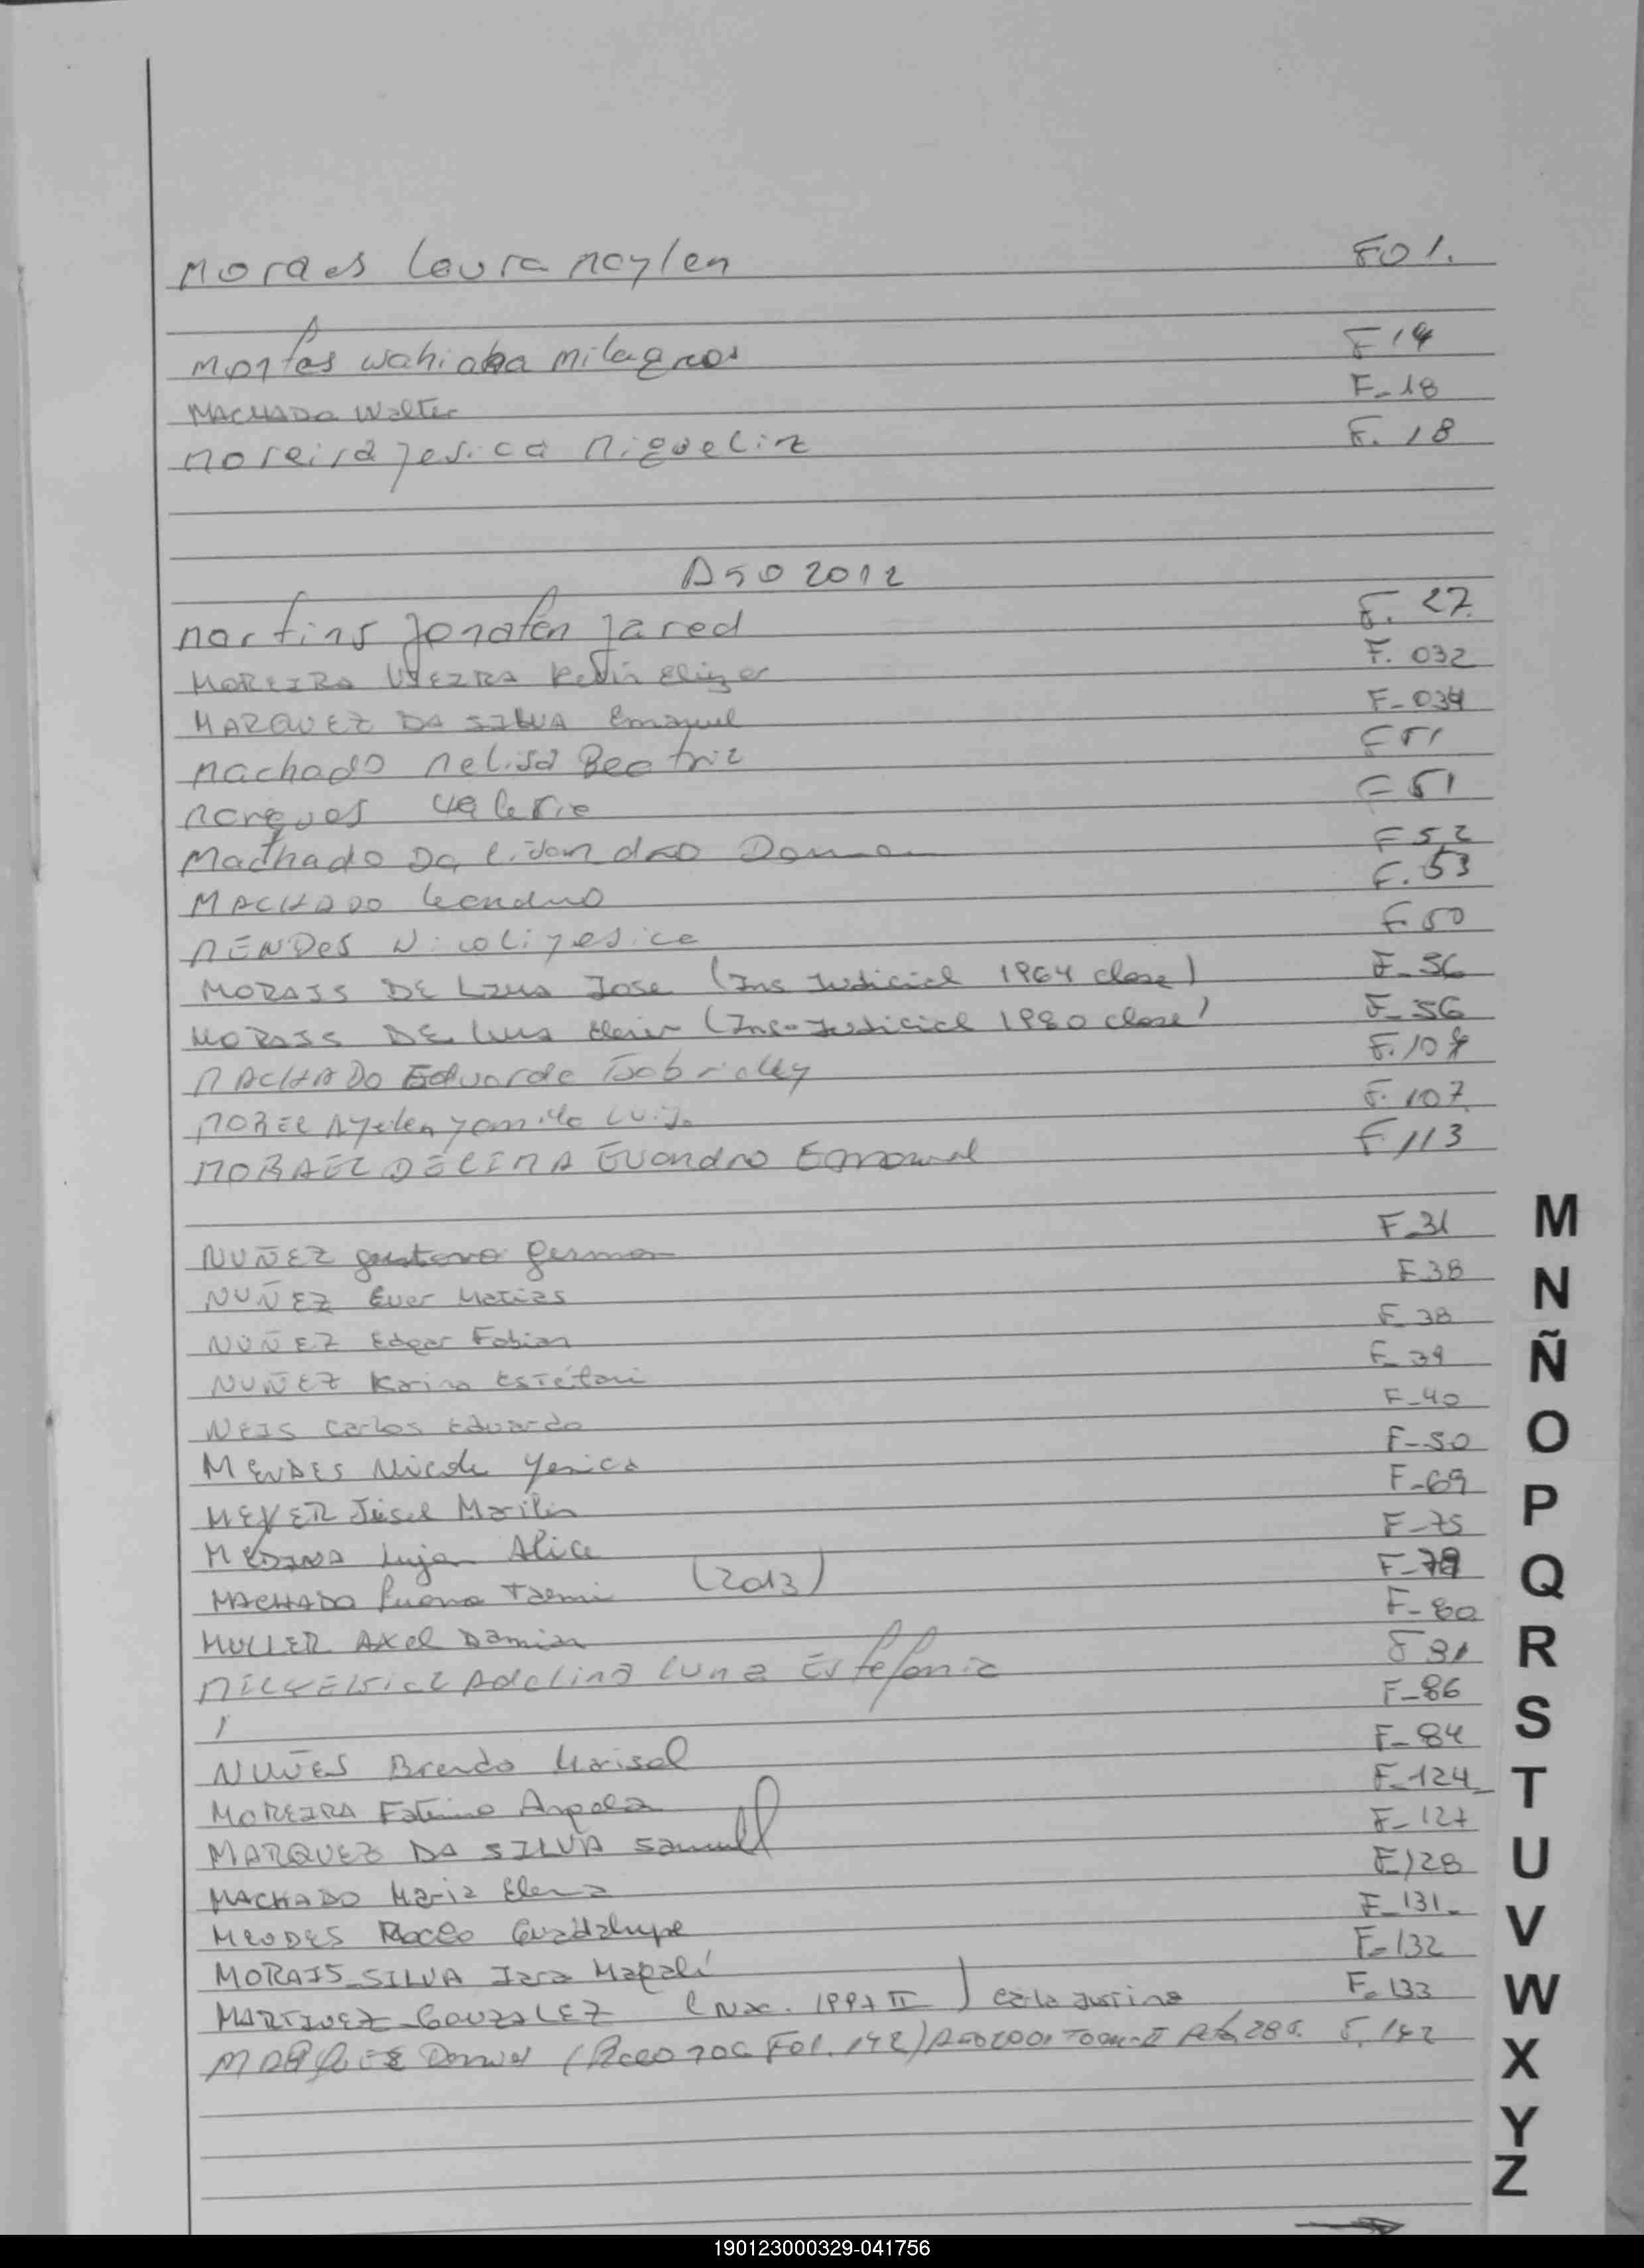 Moraes Laura Maylen F01.
Montes Milagros F 14
MACHADO Walter F-18
Moreira Jesica Miguelina F. 18
Año 2012
Martins Jonatan Jared F. 27.
MOREIRA VIEIRA Kevin Eliezer F. 032
MARQUEZ DA SILVA Emanuel F-034
Machado Melisa Beatriz F 51
Marques Valeria F 51
Machado Da F 52
MACHADO Leandro F. 53
MENDES Nicol Yesica F 50
MORAIS DE LIMA Jose (Ins Judicial 1964 clase) F-56
MORAIS DE Lima (Ins-Judicial 1980 clase) F-56
MACHADO Eduarda F. 10
MOREL Ayelen Yamila F. 107.
MORAEZ DE LIMA Evandro Emanuel F 113
NUÑEZ gustavo german F-31
NUÑEZ Ever Matias F 38
NUÑEZ Edgar Fabian F-38
NUÑEZ Karina Estefani F-39
NEIS Carlos Eduardo F-40
MENDES Nicole Yesica F-50
MEYER Jisel Marilin F-69
MEDINA Lujan Alice F-75
MACHADO Tasmi (2013) F-79
MULLER Axel Damian F-80
Adelina Luna Estefania F 81
F-86
NUÑES Brenda Marisol F-84
MOREIRA Fatima F-124
MARQUEZ DA SILVA Samuel F-127
MACHADO Maria Elena F128
MENDES Rocio Guadalupe F-131-
MORAIS-SILVA Iara Magali F-132
MARTINEZ-GONZALEZ (Nac. 1997 II) Carla Justina F-133
Daniel Fol. 142) F. 142
M
N
Ñ
O
P
Q
R
S
T
U
V
W
X
Y
Z
190123000329-041756